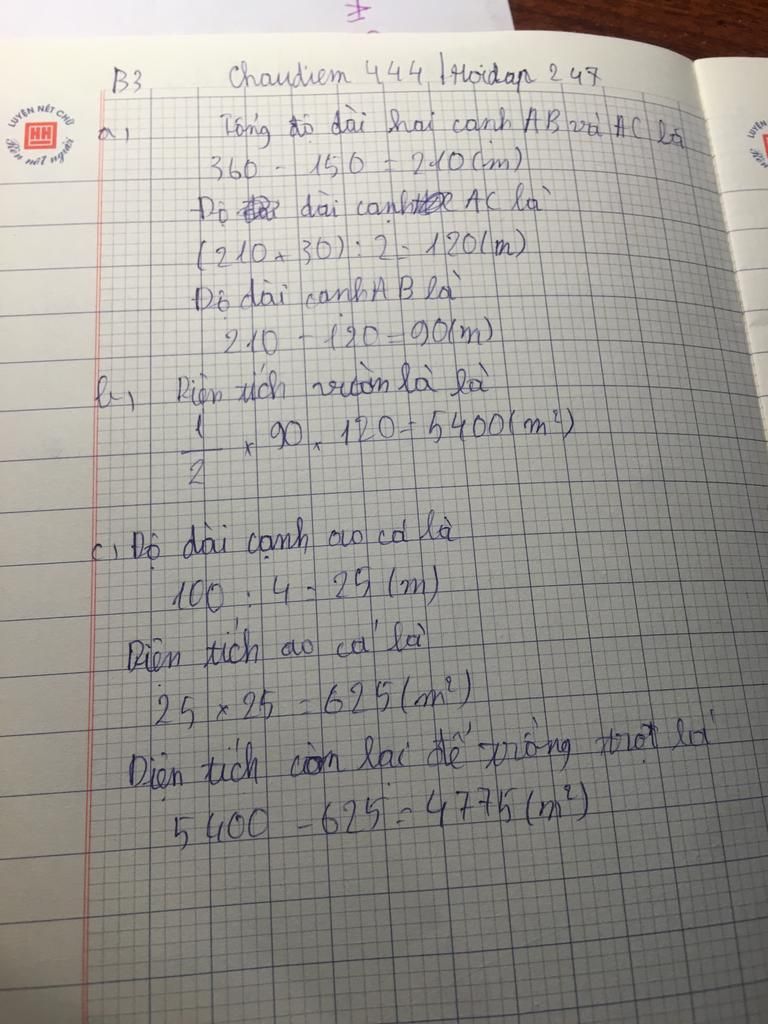 B3 Chaudiem 444 | Hoidap 247
LUYỆN NÉT CHỮ
HH
Rèn nết người
LUYỆN
a, Tổng độ dài hai canh AB và AC là
360 - 150 = 210 (m)
Độ dài cạnh AC là
(210 + 30) : 2 = 120 (m)
Độ dài canh AB là
210 - 120 = 90 (m)
b, Diện tích vườn là là
1/2 × 90 × 120 = 5400 (m²)
c, Độ dài cạnh ao cá là
100 : 4 = 25 (m)
Diện tích ao cá là
25 × 25 = 625 (m²)
Diện tích còn lại để trồng trọt là
5400 - 625 = 4775 (m²)